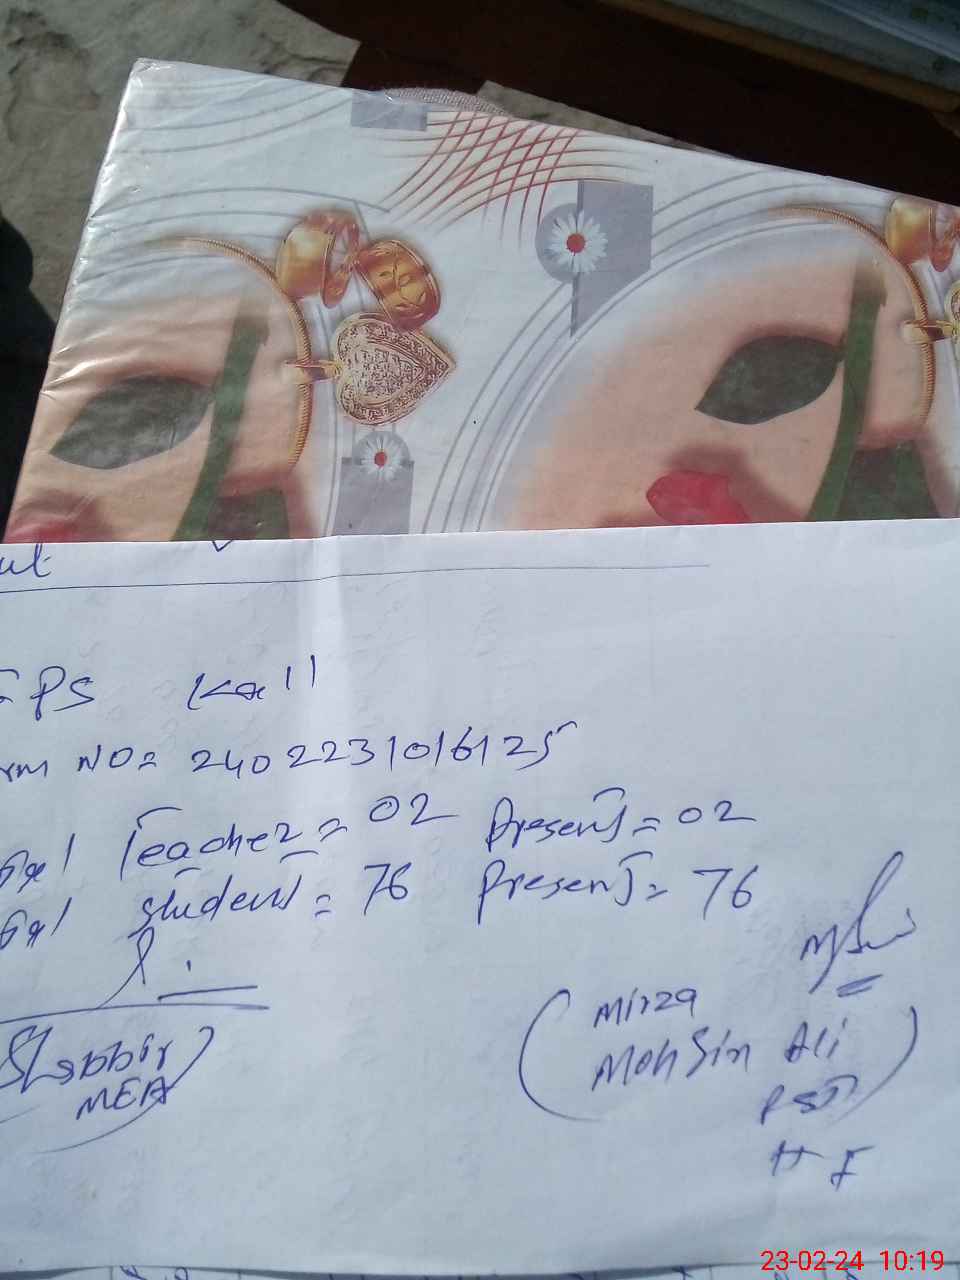 PS Kall
NO= 2402231016125
Teacher = 02 Present = 02
Student = 76 Present = 76
Shabbir
MEA
Mirza
Mohsin Ali
PST
23-02-24 10:19